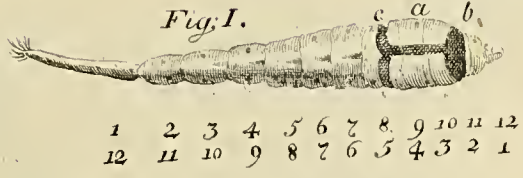 Fig; I. c a b.
1 2 3 4 5 6 7 8. 9 10 11 12
12 11 10 9 8 7 6 5 4 3 2 1